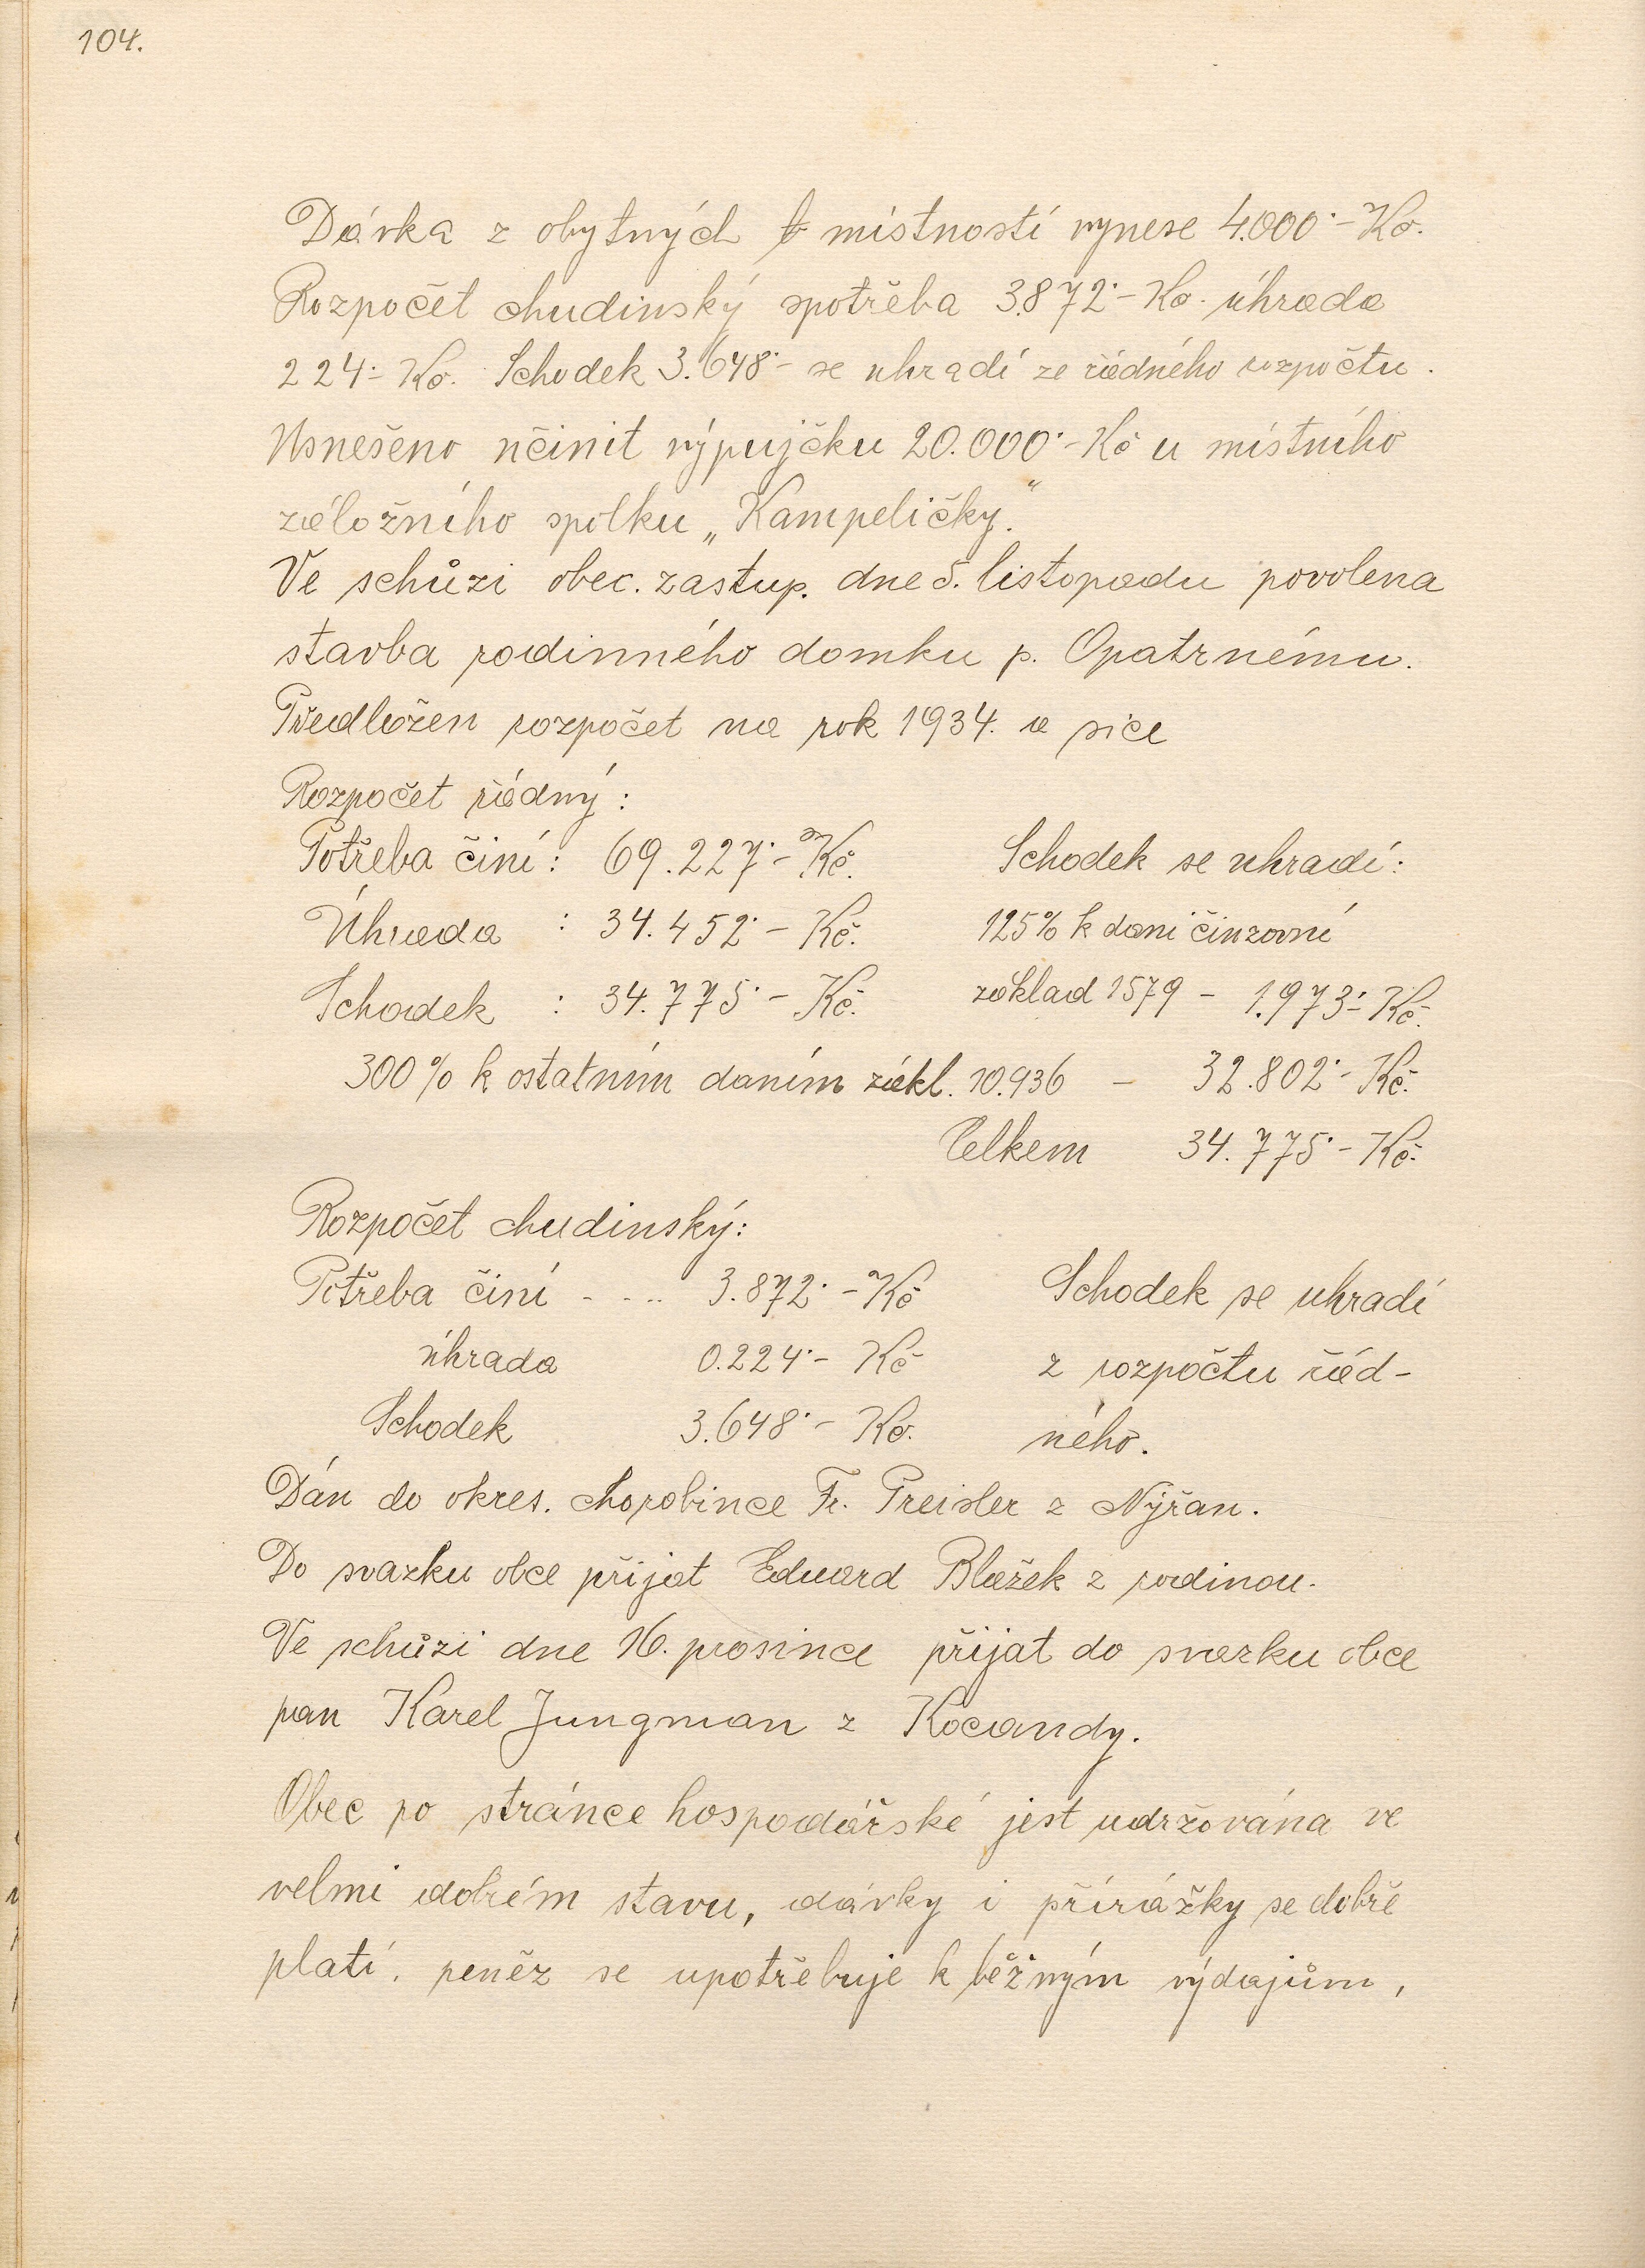 104.
Dávka z obytných místností vynese 4.000·- Kč.
Rozpočet chudinský spotřeba 3.872·- Kč. úhrada
224·- Kč. Schodek 3.648·- se uhradí ze řádného rozpočtu.
Usnešeno učinit výpujčku 20.000·- Kč u místního
záložního spolku „Kampeličky."
Ve schůzi obec. zastup. dne 5. listopadu povolena
stavba rodinného domku p. Opatrnému.
Předložen rozpočet na rok 1934. a sice
Rozpočet řádný:
Potřeba činí: 69.227·- Kč. Schodek se uhradí:
Úhrada : 34.452·- Kč. 125% k dani činzovní
Schodek : 34.775·- Kč. základ 1579 - 1.973·- Kč.
300% k ostatním daním zákl. 10.936 - 32.802·- Kč.
Celkem 34.775·- Kč.
Rozpočet chudinský:
Potřeba činí - - .. 3.872·- Kč Schodek se uhradí
úhrada 0.224·- Kč z rozpočtu řád-
Schodek 3.648·- Kč. ného.
Dán do okres. chorobince Fr. Preisler z Nýřan.
Do svazku obce přijat Eduard Blažek z rodinou.
Ve schůzi dne 16. prosince přijat do svazku obce
pan Karel Jungman z Kocandy.
Obec po stránce hospodářské jest udržována ve
velmi dobrém stavu, dávky i přírážky se dobře
platí. peněz se upotřebuje k běžným výdajům,